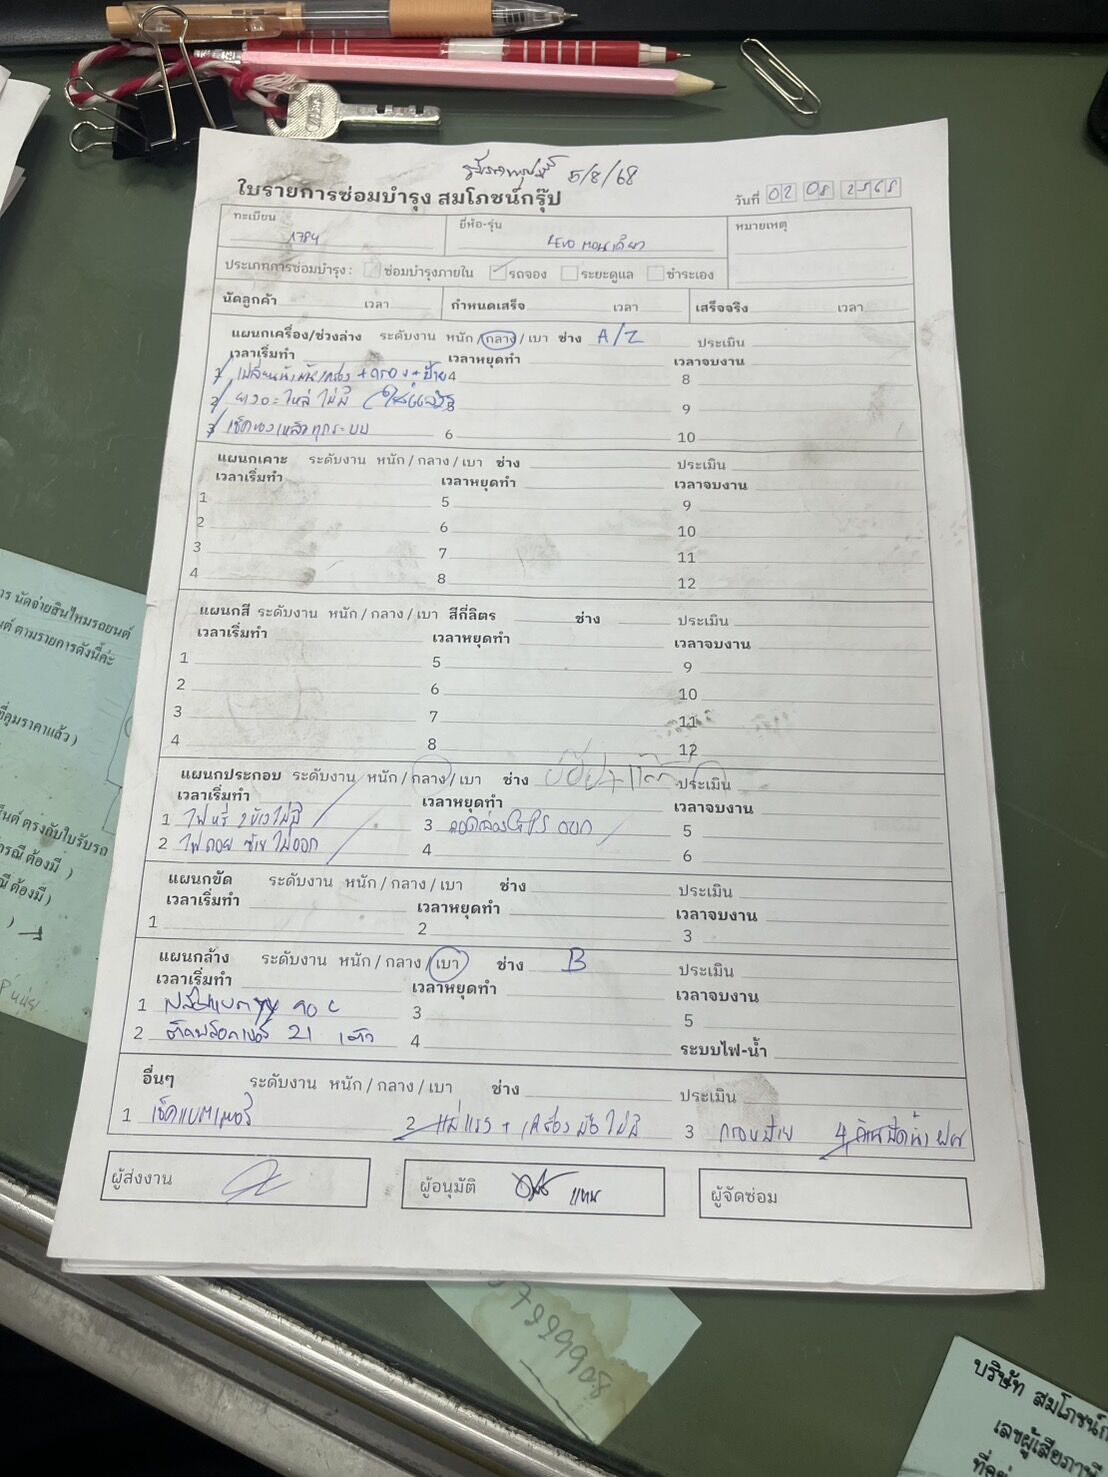 5/8/68
ใบรายการซ่อมบำรุง สมโภชน์กรุ๊ป
วันที่ 02 08 2568
ทะเบียน 1784
ยี่ห้อ-รุ่น REVO ตอนเดียว
หมายเหตุ
ประเภทการซ่อมบำรุง : ซ่อมบำรุงภายใน รถจอง ระยะดูแล ชำระเอง
นัดลูกค้า เวลา กำหนดเสร็จ เวลา เสร็จจริง เวลา
แผนกเครื่อง/ช่วงล่าง ระดับงาน หนัก / กลาง / เบา ช่าง A/Z ประเมิน
เวลาเริ่มทำ เวลาหยุดทำ เวลาจบงาน
1 เปลี่ยนน้ำมันเครื่อง + กรอง + ป้าย 4 8
2 ยางอะไหล่ ไม่มี 5 9
3 เช็คของเหลวทุกระบบ 6 10
แผนกเคาะ ระดับงาน หนัก / กลาง / เบา ช่าง ประเมิน
เวลาเริ่มทำ เวลาหยุดทำ เวลาจบงาน
1 5 9
2 6 10
3 7 11
4 8 12
แผนกสี ระดับงาน หนัก / กลาง / เบา สีกี่ลิตร ช่าง ประเมิน
เวลาเริ่มทำ เวลาหยุดทำ เวลาจบงาน
1 5 9
2 6 10
3 7 11
4 8 12
แผนกประกอบ ระดับงาน หนัก / กลาง / เบา ช่าง ประเมิน
เวลาเริ่มทำ เวลาหยุดทำ เวลาจบงาน
1 ไฟหรี่ 2 ข้างไม่มี 3 ถอดกล่อง GPS ออก 5
2 ไฟถอย ซ้าย ไม่ออก 4 6
แผนกขัด ระดับงาน หนัก / กลาง / เบา ช่าง ประเมิน
เวลาเริ่มทำ เวลาหยุดทำ เวลาจบงาน
1 2 3
แผนกล้าง ระดับงาน หนัก / กลาง / เบา ช่าง B ประเมิน
เวลาเริ่มทำ เวลาหยุดทำ เวลาจบงาน
1 3 5
2 21 4 ระบบไฟ-น้ำ
อื่นๆ ระดับงาน หนัก / กลาง / เบา ช่าง ประเมิน
1 เช็คแบตเตอรี่ 2 แม่แรง + เครื่องมือ ไม่มี 3 กรอบป้าย 4
ผู้ส่งงาน ผู้อนุมัติ แทน ผู้จัดซ่อม
าร นัดจ่ายสินไหมรถยนต์
นต์ ตามรายการดังนี้ค่ะ
ที่คุมราคาแล้ว )
นต์ ตรงกับใบรับรถ
กรณี ต้องมี )
ณี ต้องมี )
บริษัท สมโภชน์ก
เลขผู้เสียภาษี
ที่อยู่